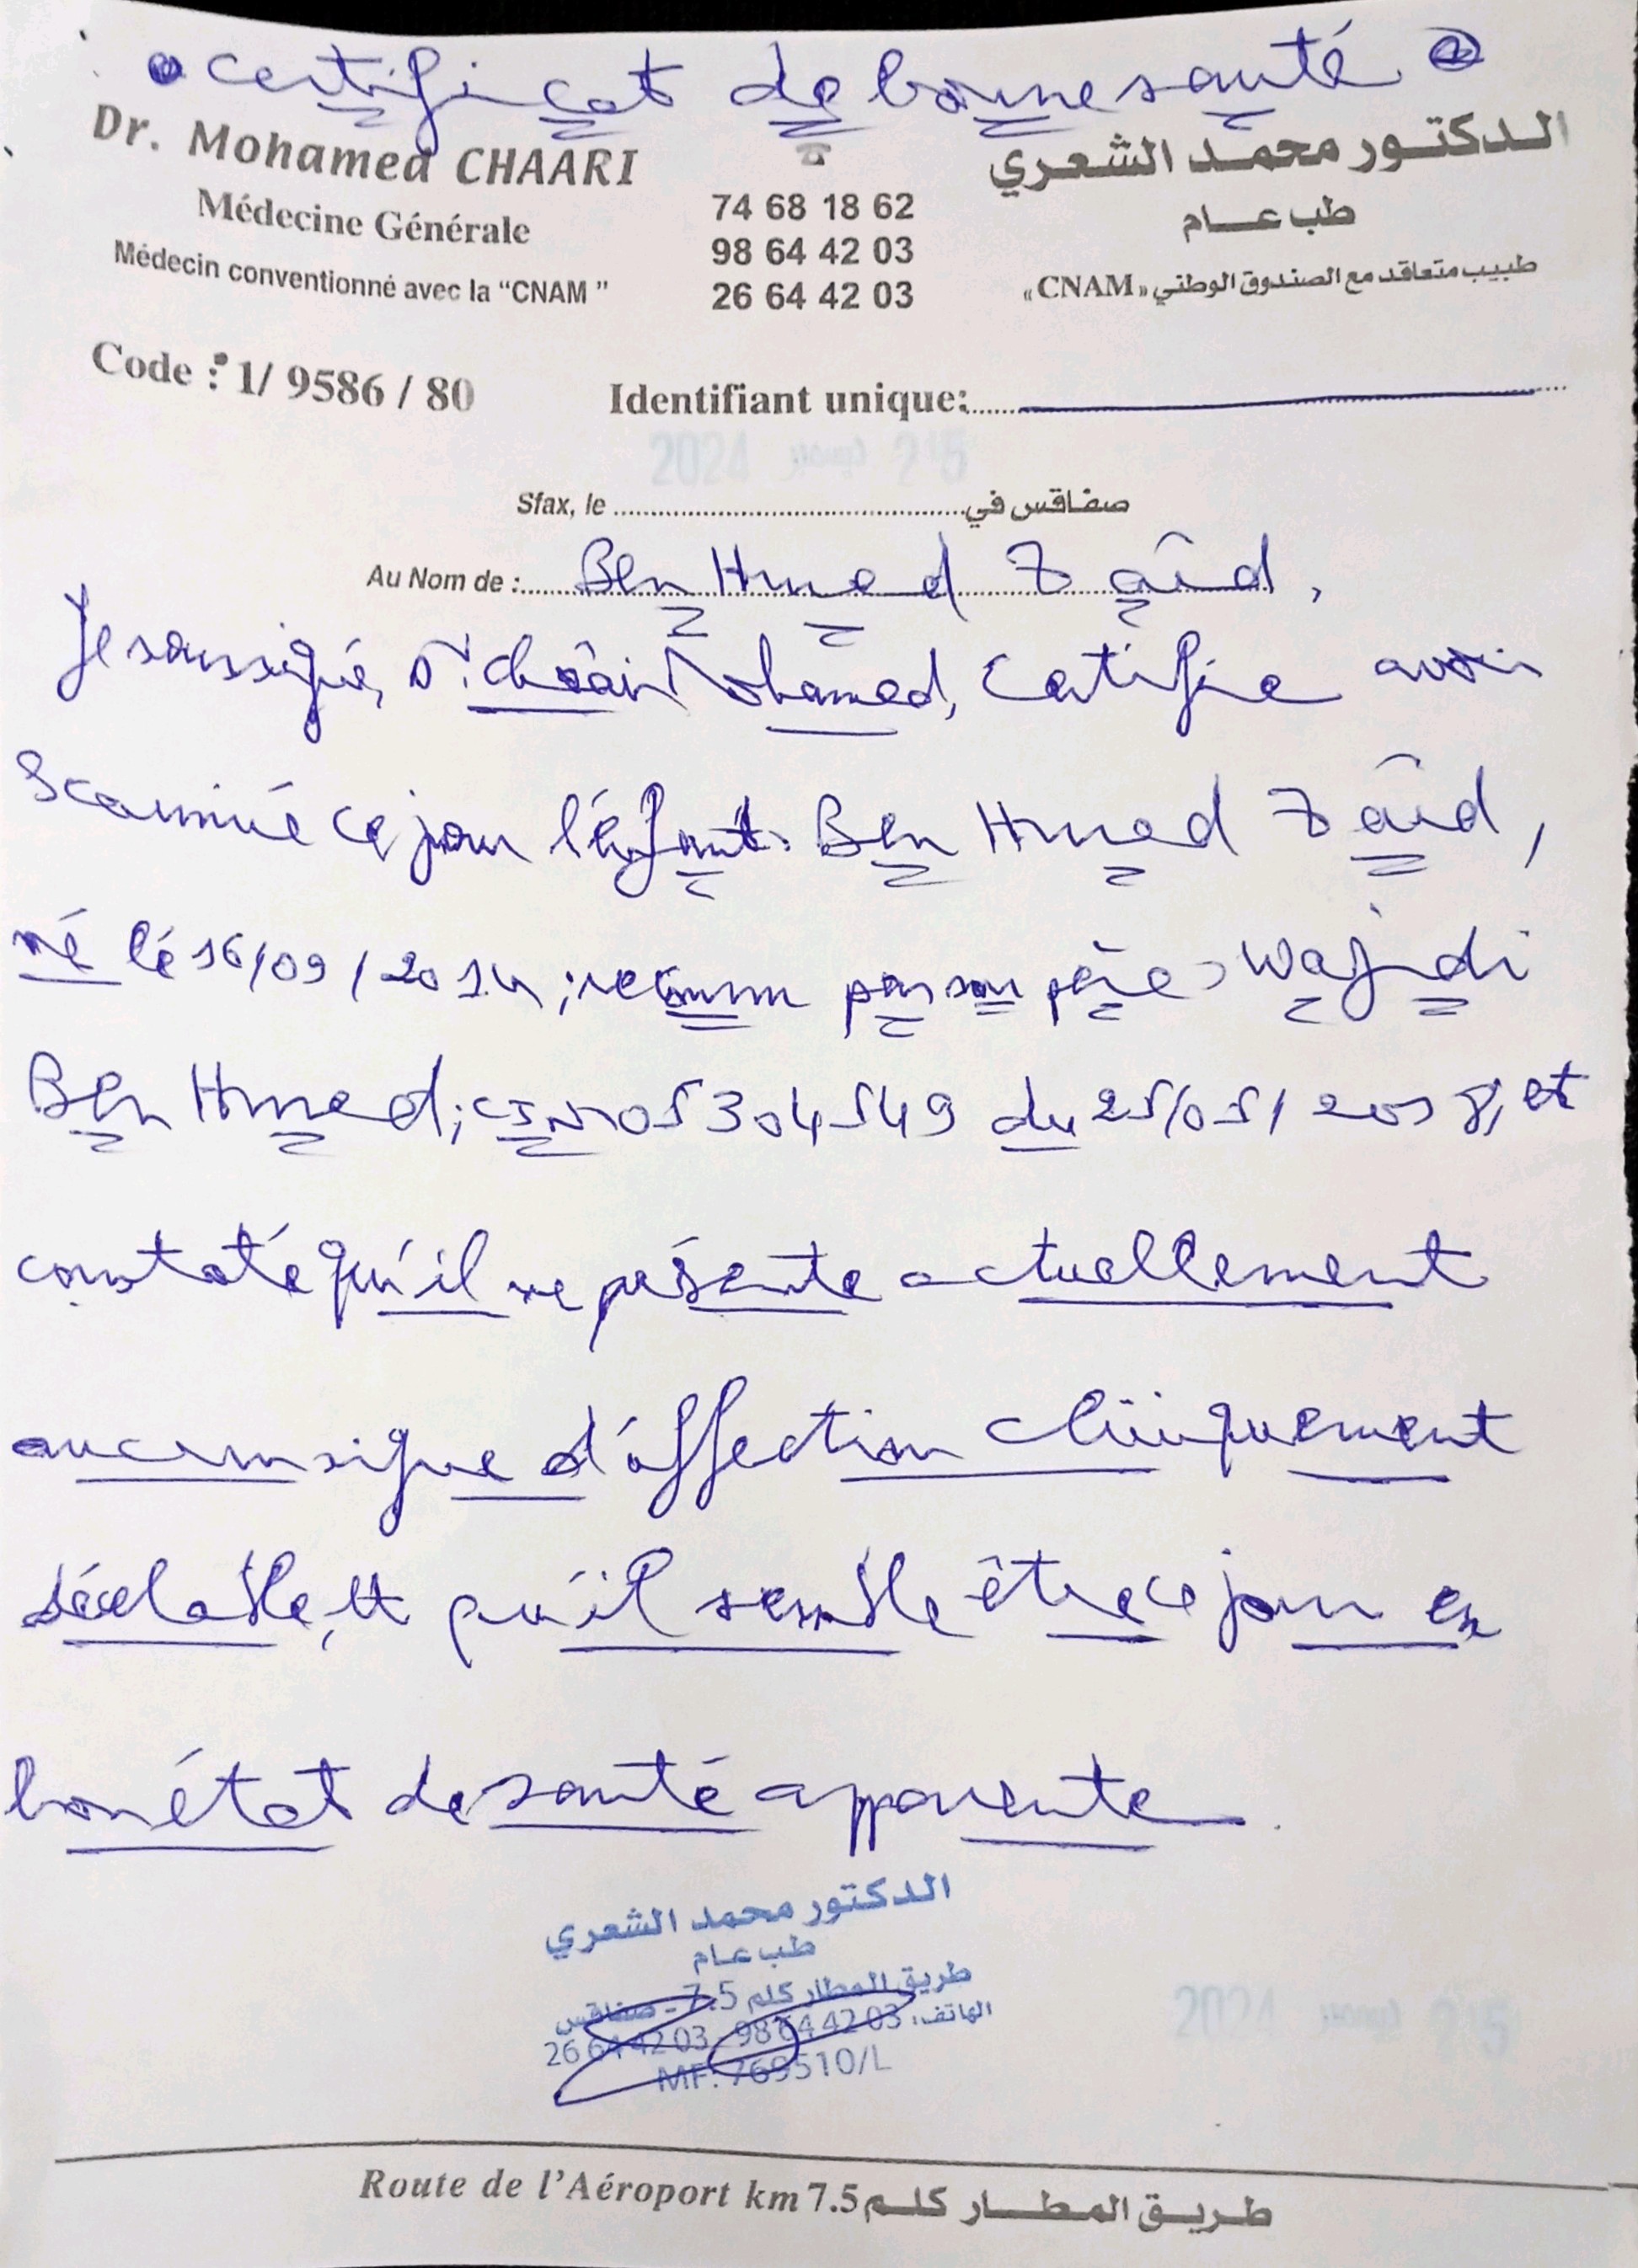 certificat de bonne santé
Dr. Mohamed CHAARI
Médecine Générale
Médecin conventionné avec la "CNAM "
74 68 18 62
98 64 42 03
26 64 42 03
الدكتور محمد الشعري
طب عام
طبيب متعاقد مع الصندوق الوطني «CNAM»
Code : 1/ 9586 / 80
Identifiant unique:
2024 ديسمبر 25
Sfax, le صفاقس في
Au Nom de : Ben Hmed Zaîd,
Je soussigné, Dr. Chaâri Mohamed, certifie avoir
examiné ce jour l'enfant Ben Hmed Zaîd,
né le 16/09/2014; reconnu par son père Wajdi
Ben Hmed; CIN 05304549 du 25/05/2018, et
constaté qu'il ne présente actuellement
aucun signe d'affection cliniquement
décelable, et qu'il semble être ce jour en
bon état de santé apparente.
الدكتور محمد الشعري
طب عام
طريق المطار كلم 7.5 - صفاقس
الهاتف: 98 64 42 03 - 26 64 42 03
MF: 769510/L
2024 ديسمبر 25
Route de l'Aéroport km 7.5 طريق المطار كلم